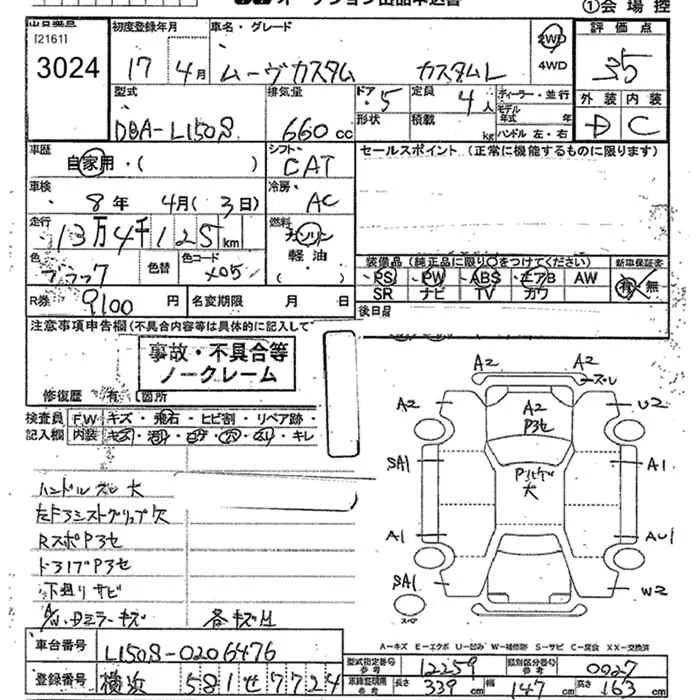 オークション出品申込書
①会場控
[2161]
3024
初度登録年月
17年 4月
車名・グレード
ムーヴカスタム カスタムL
2WD
4WD
評価点
3.5
外装 内装
D C
型式
DBA-L150S
排気量
660cc
ドア・形状
5
定員
4人
積載 kg
ディーラー・並行
モデル年式 年
ハンドル 左・右
車歴
自家用・( )
シフト
CAT
セールスポイント(正常に機能するものに限ります)
車検
8年 4月(3日)
冷房
AC
走行
13万4千125km
燃料
ガソリン
軽油
( )
色
ブラック
色替
色コード
X05
装備品(純正品に限り○をつけてください)
PS PW ABS エアB AW
SR ナビ TV カワ
新車保証書
有・無
R券
9100円
名変期限 月 日
後日品
注意事項申告欄(不具合内容等は具体的に記入して
事故・不具合等
ノークレーム
修復歴 有 [箇所
検査員記入欄
FW キズ・飛石・ヒビ割・リペア跡・
内装 キズ・・・・・キレ
ハンドル スレ 大
R スポ P3セ
ドアバブ P3セ
下廻り サビ
各キズ凹
A2 A2
ズレ
A2 A2 U2
P3セ
SA1 A1
P
大
A1 AU1
SA1 W2
スペア
A-キズ E-エクボ U-凹み W-補修跡 S-サビ C-腐食 XX-交換済
車台番号
L150S-0206476
型式指定番号
参考
12259
類別区分番号
参考
0027
登録番号
横浜 581せ7724
車検証整理用
参考
長さ 339cm 幅 147cm 高さ 163cm